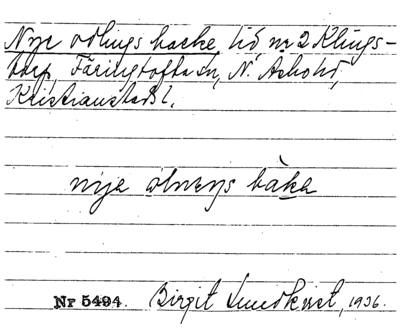 Nye odlings backe, vid nr 2 Klings-
torp, Färingtofta sn, N. Åsbo hd,
Kristianstads l.
nije ólneŋs bàka
Nr 5494. Birgit Lundkvist, 1936.